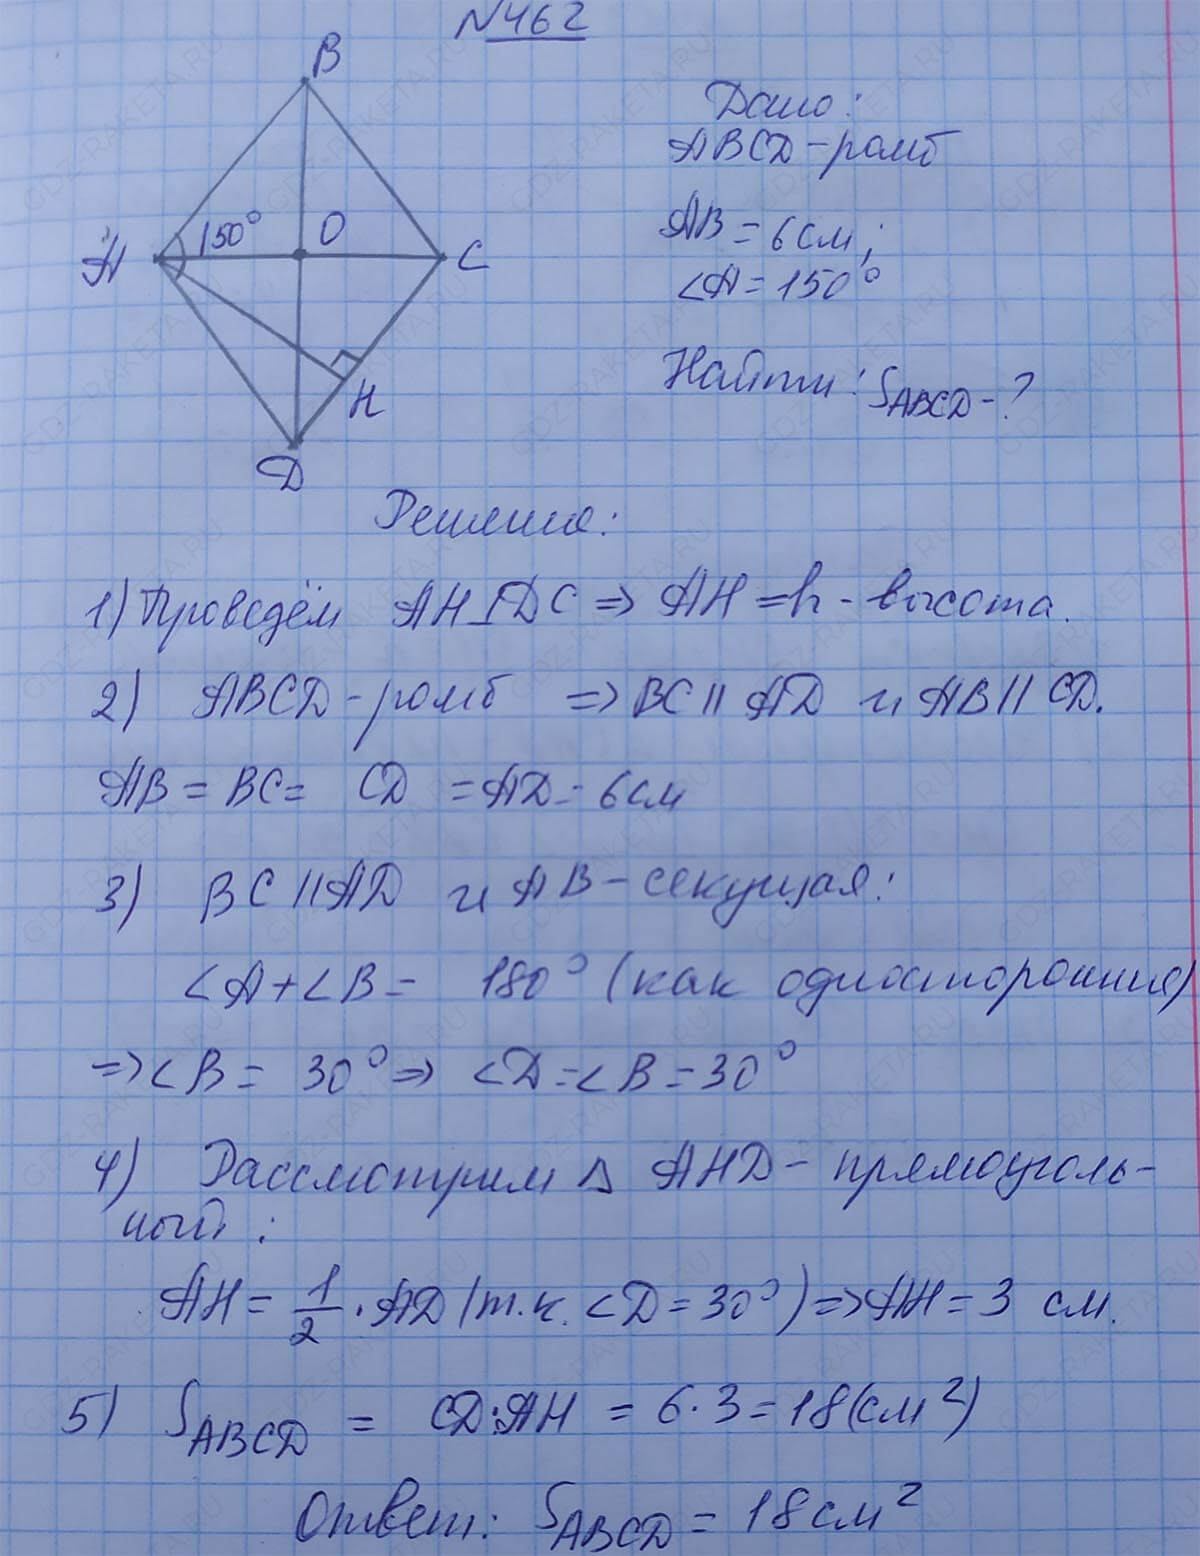 №462
B
Дано:
ABCD-ромб
A 150° O C
AB = 6 см;
∠A = 150°
H
Найти: S ABCD - ?
D
Решение:
1) Проведём AH ⊥ DC ⇒ AH = h - высота.
2) ABCD - ромб ⇒ BC || AD и AB || CD.
AB = BC = CD = AD = 6 см
3) BC || AD и AB - секущая:
∠A + ∠B = 180° (как односторонние)
⇒ ∠B = 30° ⇒ ∠D = ∠B = 30°
4) Рассмотрим Δ AHD - прямоуголь-
ный:
AH = 1/2 · AD (т.к. ∠D = 30°) ⇒ AH = 3 см.
5) S ABCD = CD · AH = 6 · 3 = 18 (см²)
Ответ: S ABCD = 18 см²
GDZ-RAKETA.RU